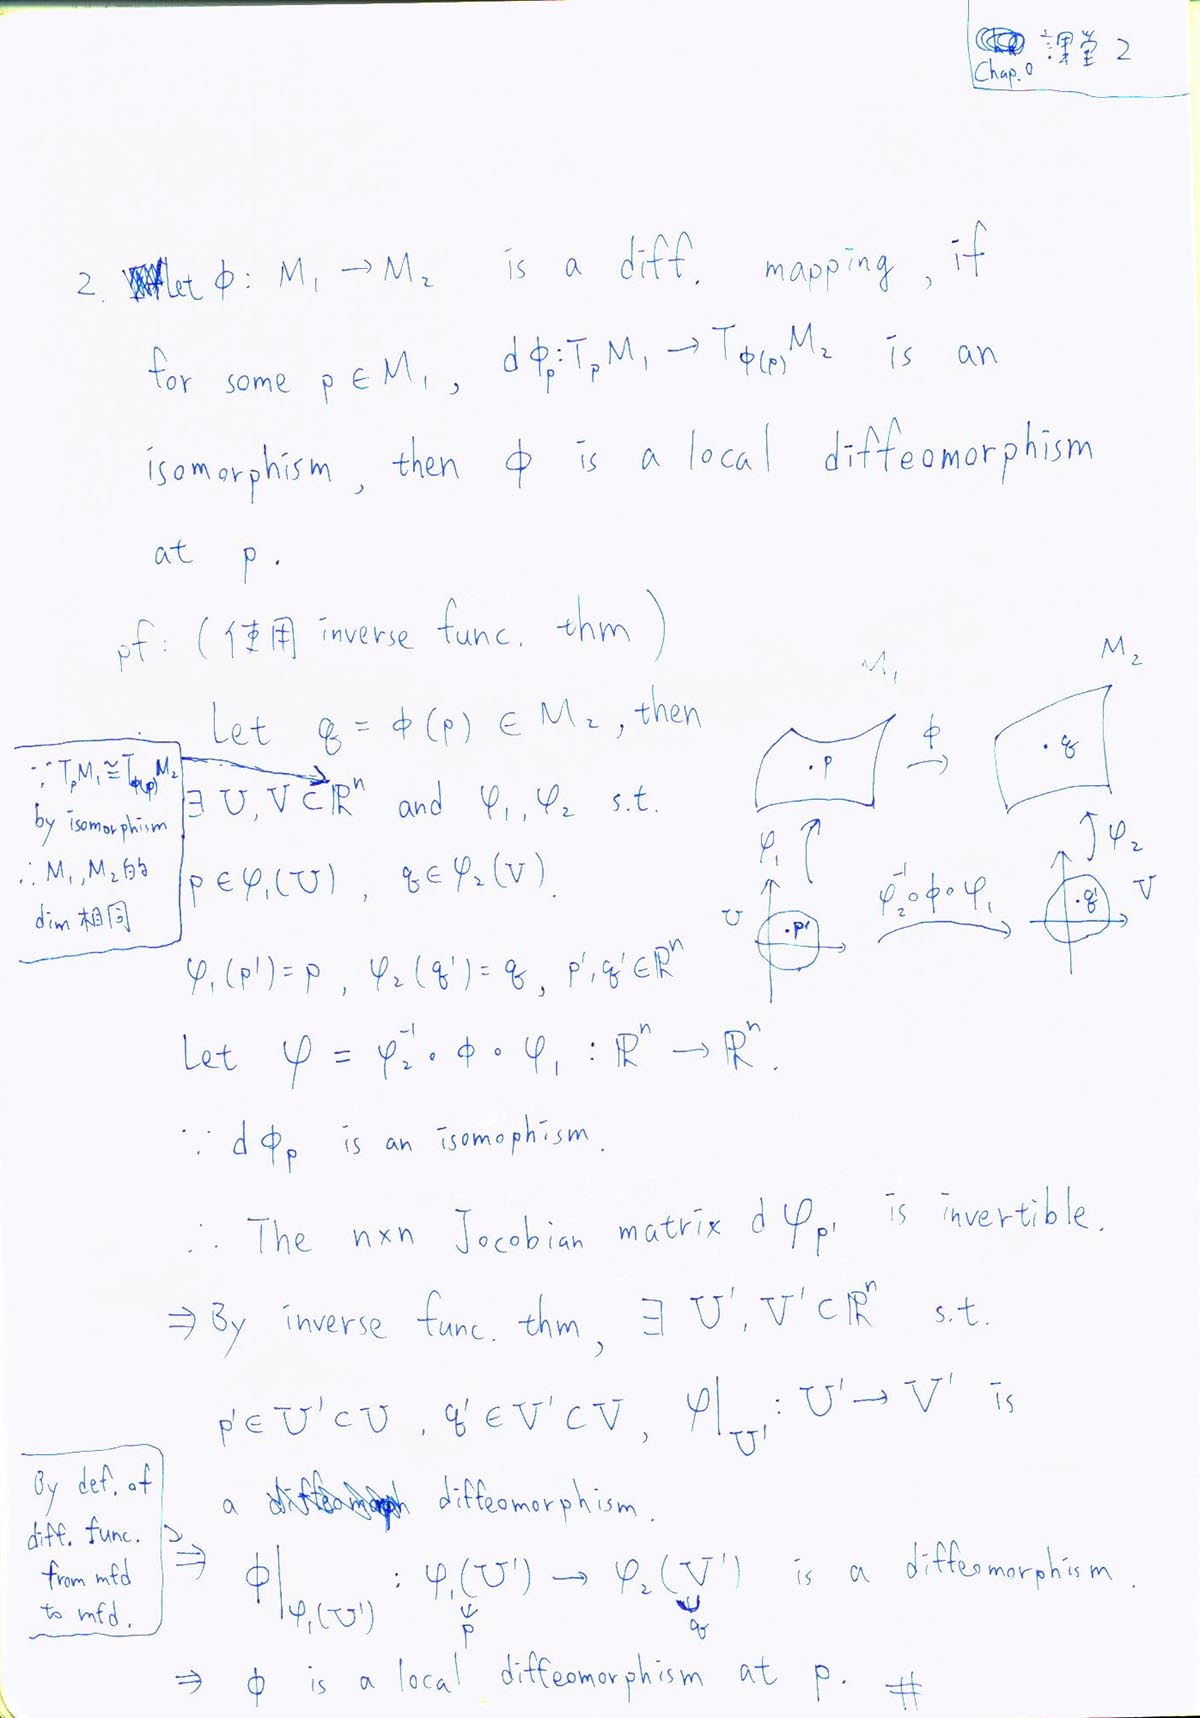 課堂 2
Chap.0
2. Let ϕ: M₁ → M₂ is a diff. mapping, if
for some p ∈ M₁, dϕₚ: TₚM₁ → T_ϕ(p) M₂ is an
isomorphism, then ϕ is a local diffeomorphism
at p.
pf: (使用 inverse func. thm)
Let q = ϕ(p) ∈ M₂, then
∃ U, V ⊂ ℝⁿ and φ₁, φ₂ s.t.
p ∈ φ₁(U), q ∈ φ₂(V).
∵ TₚM₁ ≅ T_ϕ(p) M₂
by isomorphism
∴ M₁, M₂ 的
dim 相同
M₁
M₂
ϕ
·p
·q
φ₁
φ₂
U
·p'
φ₂⁻¹∘ϕ∘φ₁
·q'
V
φ₁(p') = p, φ₂(q') = q, p', q' ∈ ℝⁿ
Let φ = φ₂⁻¹ ∘ ϕ ∘ φ₁ : ℝⁿ → ℝⁿ.
∵ dϕₚ is an isomophism.
∴ The n×n Jocobian matrix dφ_p' is invertible.
⇒ By inverse func. thm, ∃ U', V' ⊂ ℝⁿ s.t.
p' ∈ U' ⊂ U, q' ∈ V' ⊂ V, φ|_U' : U' → V' is
a diffeomorphism.
By def. of
diff. func.
from mfd
to mfd.
⇒ ϕ|_φ₁(U') : φ₁(U') → φ₂(V') is a diffeomorphism.
p
q
⇒ ϕ is a local diffeomorphism at p. #